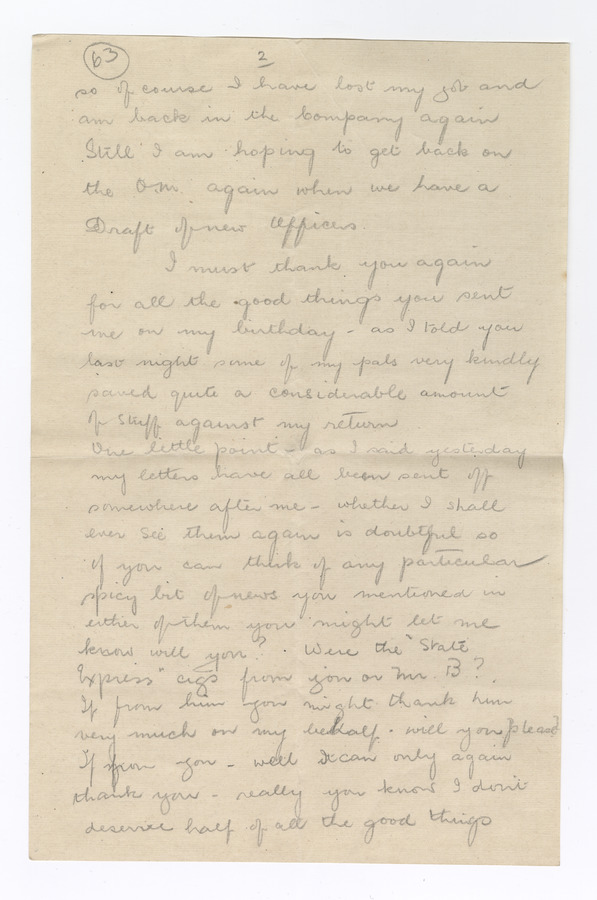 63
2
so of course I have lost my job and
am back in the Company again
Still I am hoping to get back on
the O.M. again when we have a
Draft of new Officers.
I must thank you again
for all the good things you sent
me on my birthday - as I told you
last night some of my pals very kindly
saved quite a considerable amount
of stuff against my return
One little point - as I said yesterday
my letters have all been sent off
somewhere after me - whether I shall
ever see them again is doubtful so
if you can think of any particular
spicy bit of news you mentioned in
either of them you might let me
know will you? . Were the "State
Express" cigs from you or Mr. B?
If from him you might thank him
very much on my behalf. will you please?
If from you - well I can only again
thank you - really you know I don't
deserve half of all the good things